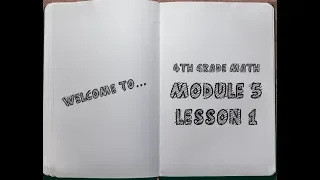 WELCOME TO...
4TH GRADE MATH
MODULE 5
LESSON 1